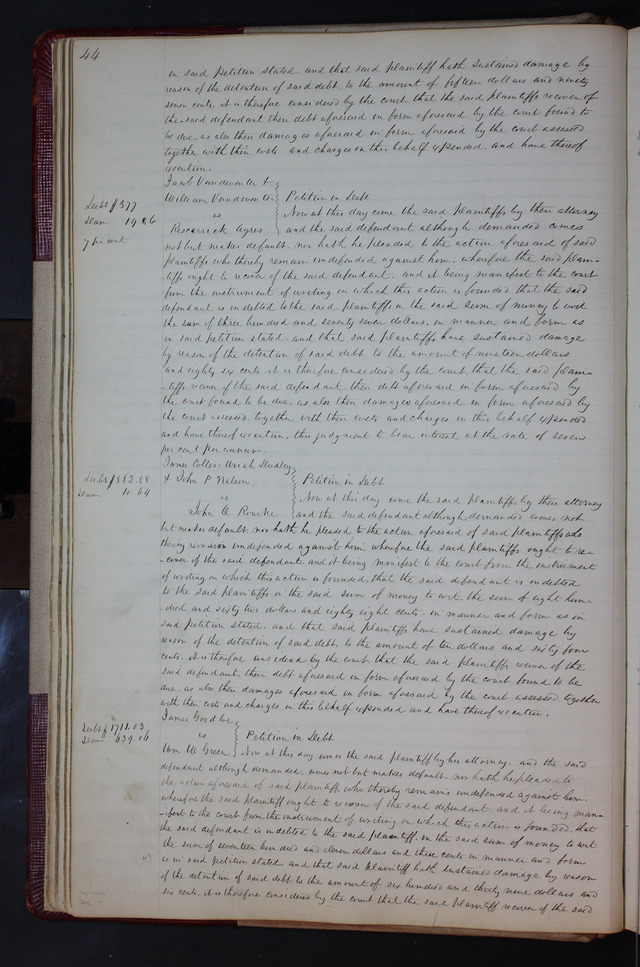 44
in said petition stated and that said plaintiff hath sustained damage by
reason of the detention of said debt to the amount of fifteen dollars and ninety
seven cents. it is therefore considered by the court that the said plaintiffs recover of
the said defendant their debt aforesaid in form aforesaid by the court found to
be due. as also their damages aforesaid in form aforesaid by the court assessed
together with their costs and charges in this behalf expended. and have thereof
execution.
Jacob Vandeventer &
William Vandeventer
vs
Ayres
Petition in Debt
Debt $377
Dam 19.86
7 per cent
Now at this day come the said plaintiffs by their attorney
and the said defendant although demanded comes
not but makes default. nor hath he pleaded to the action aforesaid of said
plaintiffs who thereby remain undefended against him. wherefore the said plain-
tiffs ought to recover of the said defendant. and it being manifest to the court
from the instrument of writing on which this action is founded that the said
defendant is indebted to the said plaintiffs in the said sum of money to wit
the sum of three hundred and seventy seven dollars. in manner and form as
in said petition stated. and that said plaintiffs have sustained damage
by reason of the detention of said debt to the amount of nineteen dollars
and eighty six cents. it is therefore considered by the court that the said plain-
-tiffs recover of the said defendant their debt aforesaid in form aforesaid by
the court found to be due. as also their damages aforesaid in form aforesaid by
the court assessed. together with their costs and charges in this behalf expended
and have thereof execution. this judgment to bear interest at the rate of seven
per cent per annum.
James Uriah Dudley
& John P Nelson
vs
John A Rourke
Petition in Debt
Debt $862.88
Dam 10.64
Now at this day come the said plaintiffs by their attorney
and the said defendant although demanded comes not
but makes default. nor hath he pleaded to the action aforesaid of said plaintiffs who
thereby remains undefended against him. wherefore the said plaintiffs ought to re-
-cover of the said defendant. and it being manifest to the court from the instrument
of writing on which this action is founded, that the said defendant is indebted
to the said plaintiffs in the said sum of money to wit, the sum of eight hun-
dred and sixty two dollars and eighty eight cents. in manner and form as in
said petition stated. and that said plaintiffs have sustained damage by
reason of the detention of said debt, to the amount of ten dollars and sixty four
cents. it is therefore considered by the court that the said plaintiffs recover of the
said defendant, their debt aforesaid in form aforesaid by the court found to be
due. as also their damages aforesaid in form aforesaid by the court assessed. together
with their costs and charges in this behalf expended and have thereof execution.
James
vs
Wm W Green
Petition in Debt
Debt $1711.03
Dam 639.06
Now at this day comes the said plaintiff by his attorney. and the said
defendant although demanded. comes not but makes default, nor hath he pleaded to
the action aforesaid of said plaintiff. who thereby remains undefended against him
wherefore the said plaintiff ought to recover of the said defendant. and it being man-
-ifest to the court from the instrument of writing on which this action is founded, that
the said defendant is indebted to the said plaintiff in the said sum of money to wit
the sum of seventeen hundred and eleven dollars and three cents in manner and form
as in said petition stated. and that said plaintiff hath sustained damage by reason
of the detention of said debt to the amount of six hundred and thirty nine dollars and
six cents. it is therefore considered by the court that the said plaintiff recover of the said